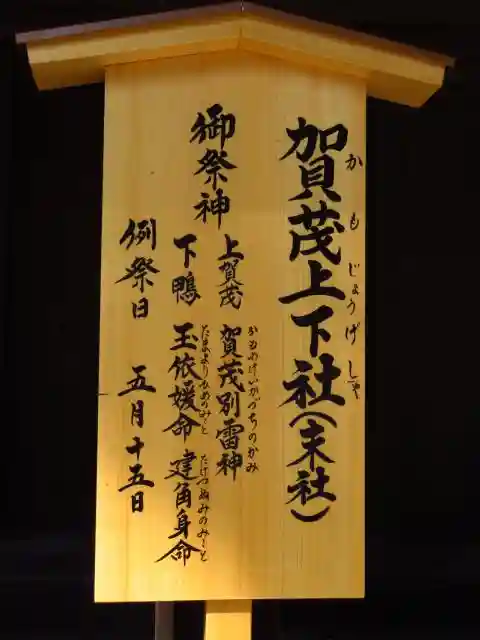 賀茂上下社(末社)
かもじょうげしゃ
御祭神
上賀茂 賀茂別雷神
かもわけいかづちのかみ
下鴨 玉依媛命 建角身命
たまよりひめのみこと たけつぬみのみこと
例祭日 五月十五日